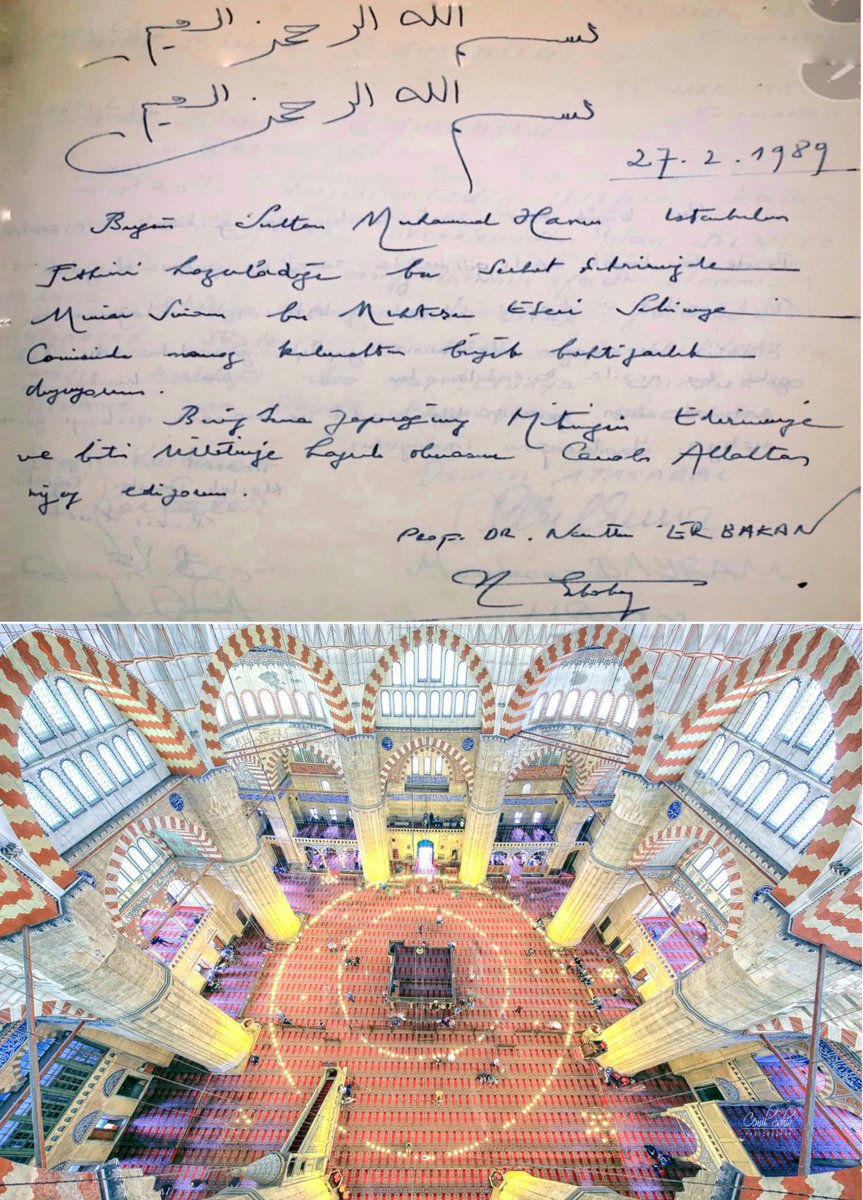 بسم الله الرحمن الرحيم
بسم الله الرحمن الرحيم
27.2.1989
Bugün Sultan Muhammed Hanın Istanbulun
Fethini hazırladığı bu Serhat Şehrimizde
Mimar Sinanın bu Muhteşem Eseri Selimiye
Camiinde namaz kılmaktan büyük bahtiyarlık
duyuyorum.
Bugün yapacağımız Mitingin Edirnemize
ve bütün Milletimize hayırlı olmasını Cenabı Allahtan
niyaz ediyorum.
Prof. DR. Necmettin ERBAKAN